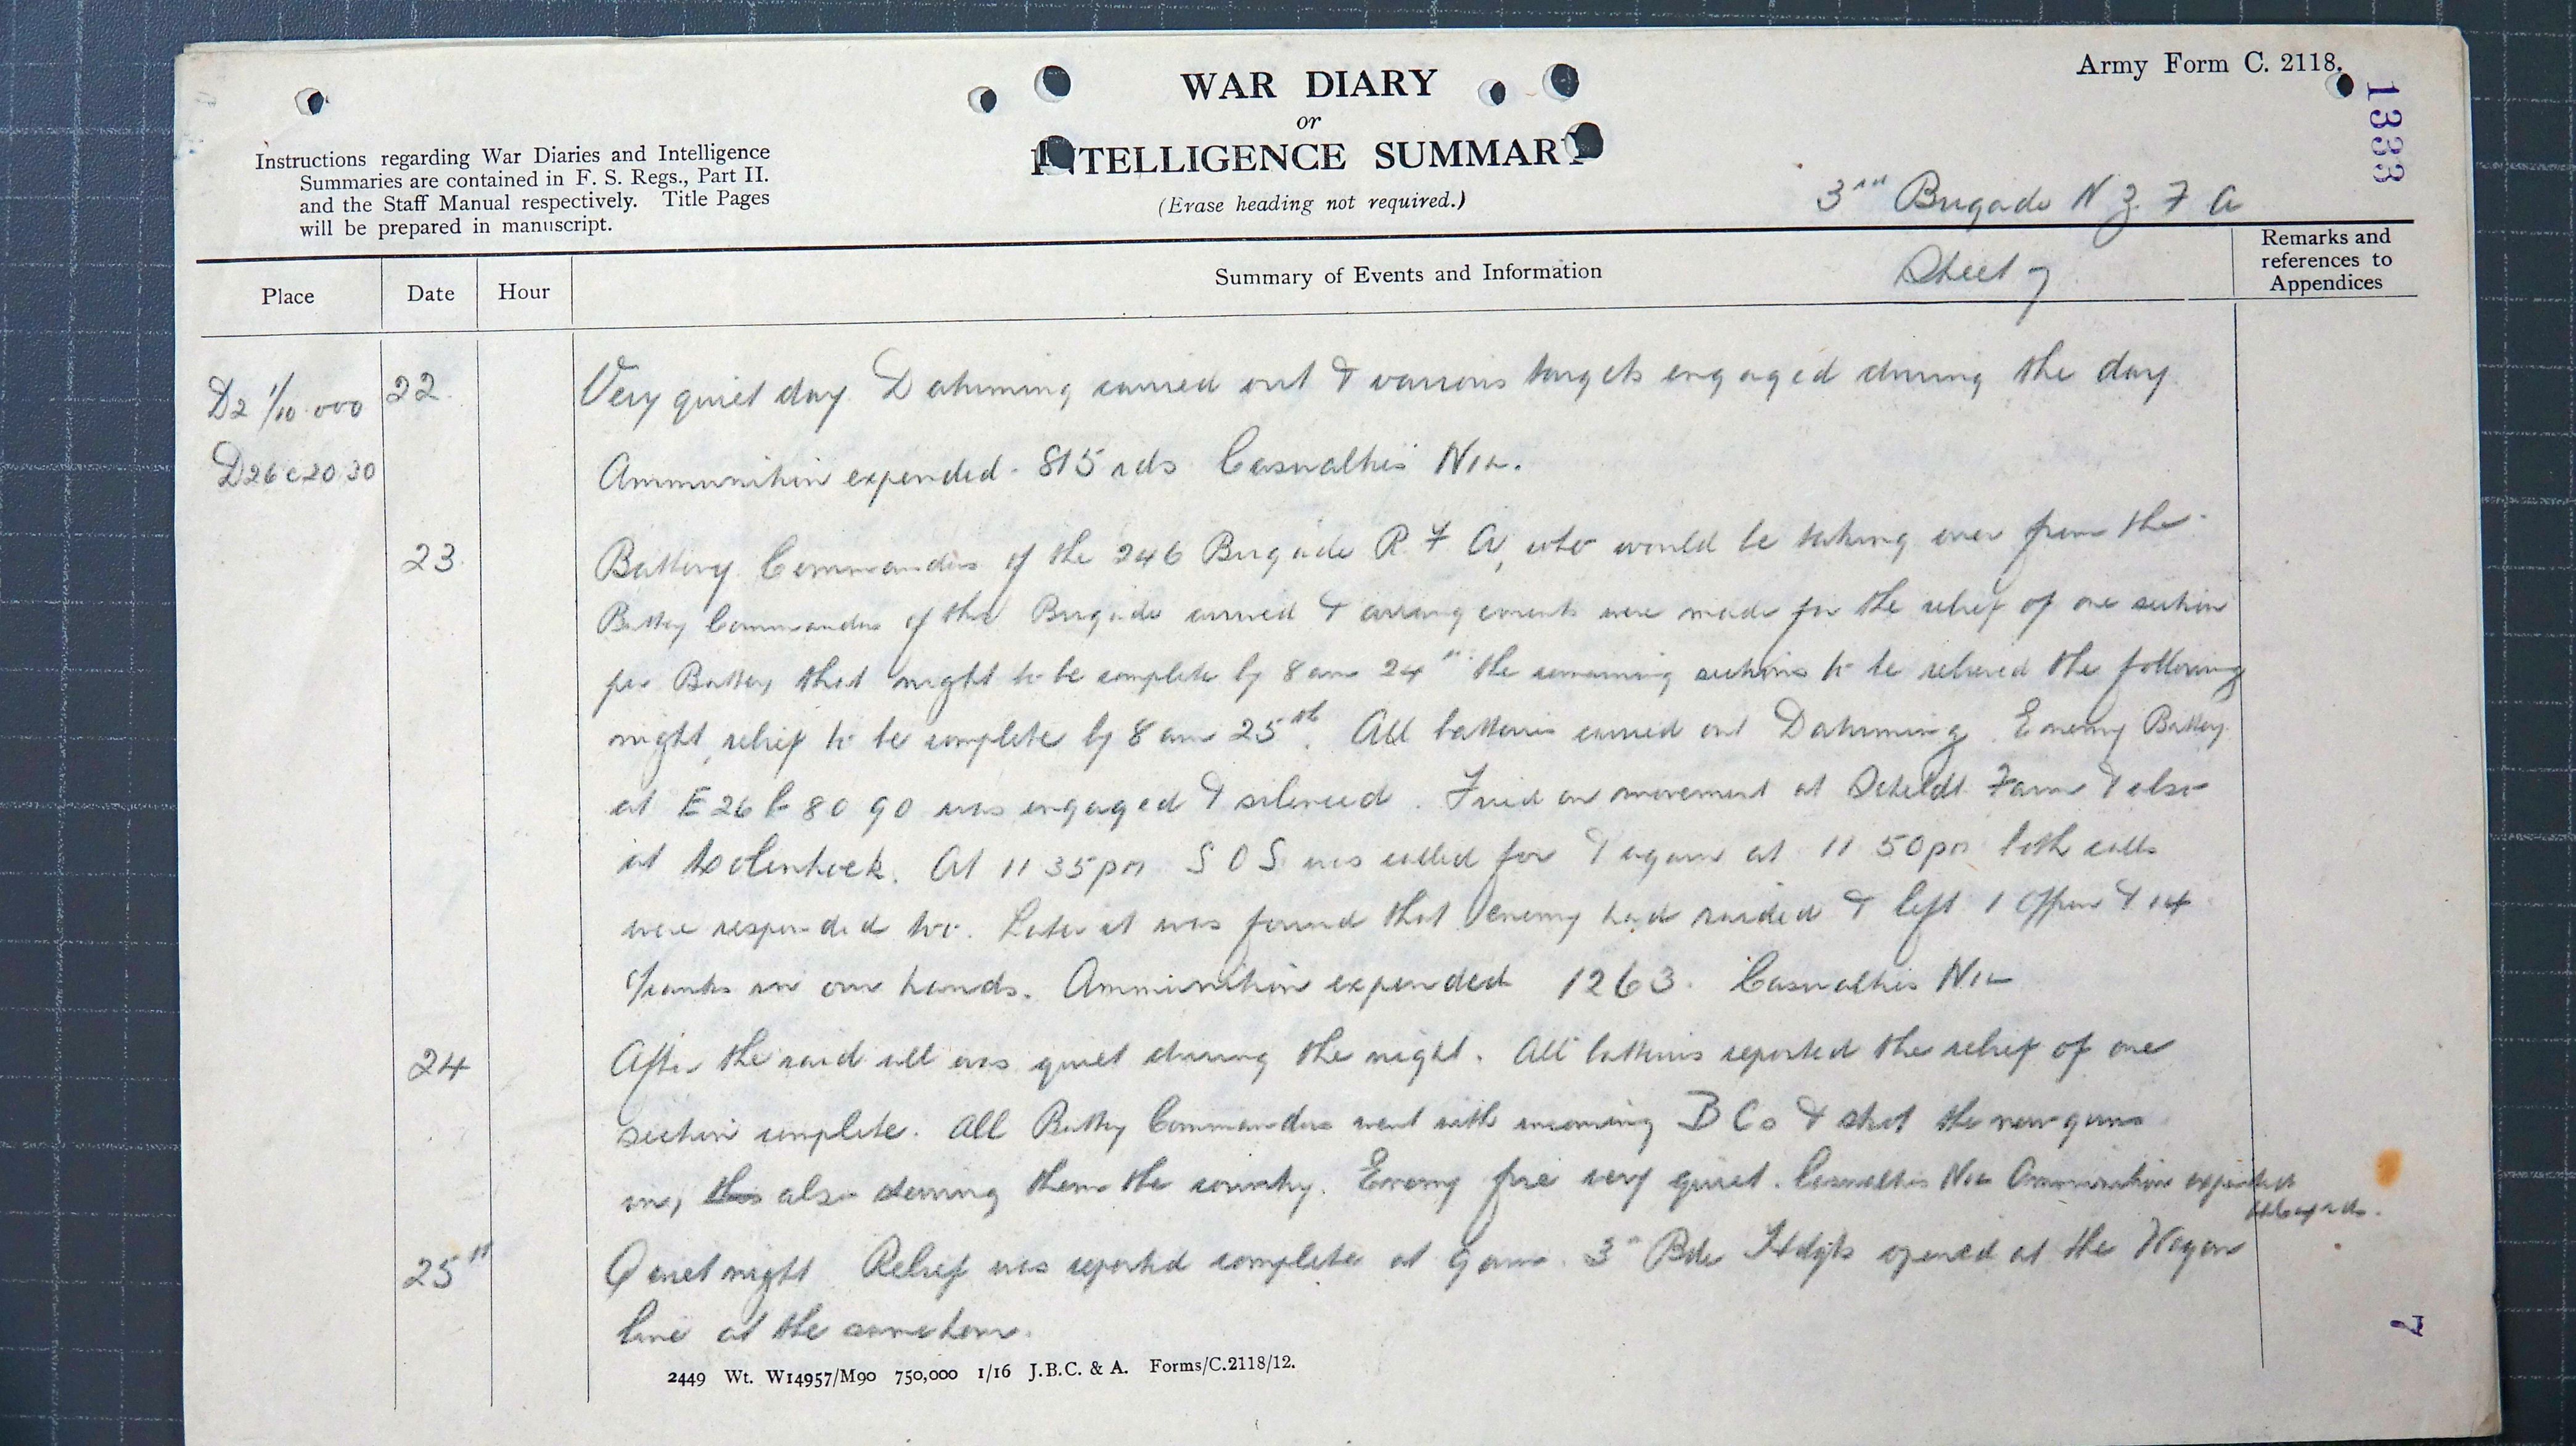 Army Form C. 2118.
1333
WAR DIARY
or
INTELLIGENCE SUMMARY
(Erase heading not required.)
Instructions regarding War Diaries and Intelligence
Summaries are contained in F. S. Regs., Part II.
and the Staff Manual respectively. Title Pages
will be prepared in manuscript.
3rd Brigade N Z F A
Sheet 7
Place
Date
Hour
Summary of Events and Information
Remarks and
references to
Appendices
D2 1/10.000
D26 c 20.30
22.
Very quiet day. Datuming carried out & various targets engaged during the day.
Ammunition expended - 815 rds Casualties Nil.
23.
Battery Commanders of the 246 Brigade R F A, who would be taking over from the
Battery Commanders of this Brigade arrived & arrangements were made for the relief of one section
per Battery that night to be complete by 8 am 24th the remaining sections to be relieved the following
night, relief to be complete by 8 am 25th. All batteries carried out Datuming. Enemy Battery
at E 26 b 80 90 was engaged & silenced. Fired on movement at Scheldt Farm & also
at. At 11 35pm S O S was called for & again at 11 50pm both calls
were responded too. Later it was found that enemy had raided & left 1 Officer & 14
O/ranks in our hands. Ammunition expended 1263. Casualties Nil
24
After the raid all was quiet during the night. All batteries reported the relief of one
section complete. All Battery Commanders went with incoming B Cs & shot the new guns
in, also showing them the country. Enemy fire very quiet. Casualties Nil Ammunition expended
rds.
25th
Quiet night Relief was reported complete at 9 am. 3rd Bde Hdqts opened at the Wagon
line at the same hour.
2449 Wt. W14957/M90 750,000 1/16 J.B.C. & A. Forms/C.2118/12.
7